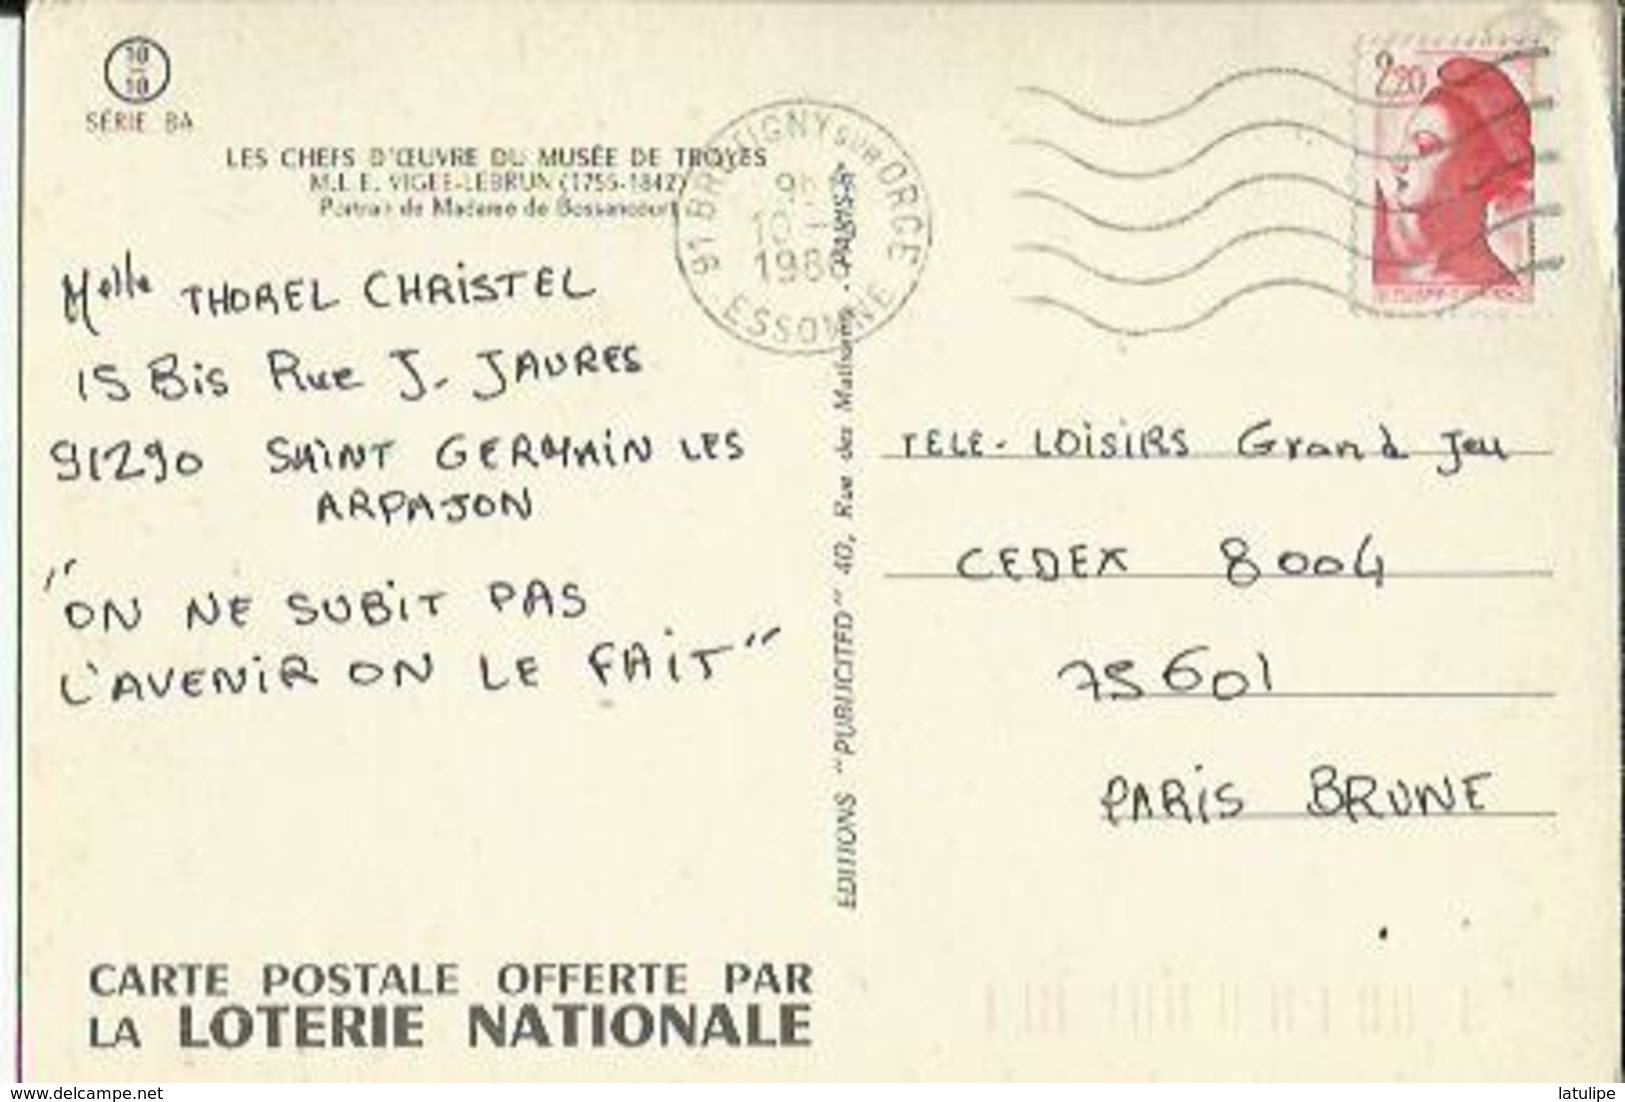 10
10
SÉRIE 8A
LES CHEFS D'ŒUVRE DU MUSÉE DE TROYES
M.L.E. VIGÉE-LEBRUN (1755-1842)
Portrait de Madame de Bossancourt
Melle THOREL CHRISTEL
15 Bis Rue J. JAURES
91290 SAINT GERMAIN LES
ARPAJON
"ON NE SUBIT PAS
L'AVENIR ON LE FAIT"
CARTE POSTALE OFFERTE PAR
LA LOTERIE NATIONALE
ÉDITIONS "PUBLICITED" 40, Rue des Mathurins - PARIS-8e
91 BRETIGNY SUR ORGE
9H
10
ESSONNE
2,20
TELE-LOISIRS Grand Jeu
CEDEX 8004
75601
PARIS BRUNE
https://www.delcampe.net
latulipe